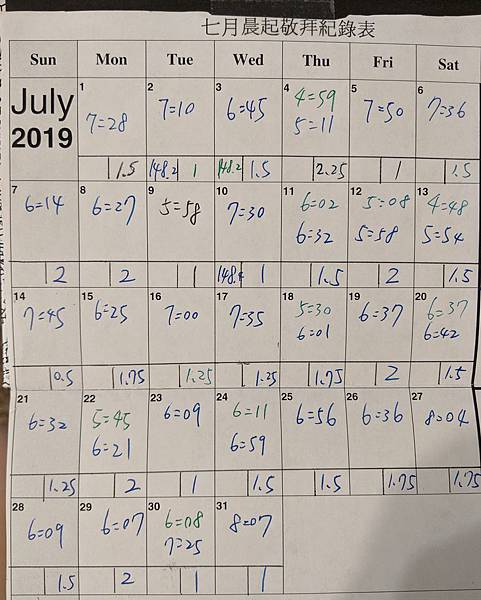 七月晨起敬拜紀錄表
Sun Mon Tue Wed Thu Fri Sat
July
2019
1 2 3 4 5 6
4=59
7=28 7=10 6=45 5=11 7=50 7=36
1.5 148.2 1 148.2 1.5 2.25 1 1.5
7 8 9 10 11 12 13
6=02 5=08 4=48
6=14 6=27 5=58 7=30 6=32 5=58 5=54
2 2 1 148.4 1 1.5 2 1.5
14 15 16 17 18 19 20
5=30 6=37
7=45 6=25 7=00 7=35 6=01 6=37 6=42
0.5 1.75 1.25 1.25 1.75 2 1.5
21 22 23 24 25 26 27
5=45 6=11
6=32 6=21 6=09 6=59 6=56 6=36 8=04
1.25 2 1 1.5 1.5 1.75 1.75
28 29 30 31
6=08
6=09 6=07 7=25 8=07
1.5 2 1 1